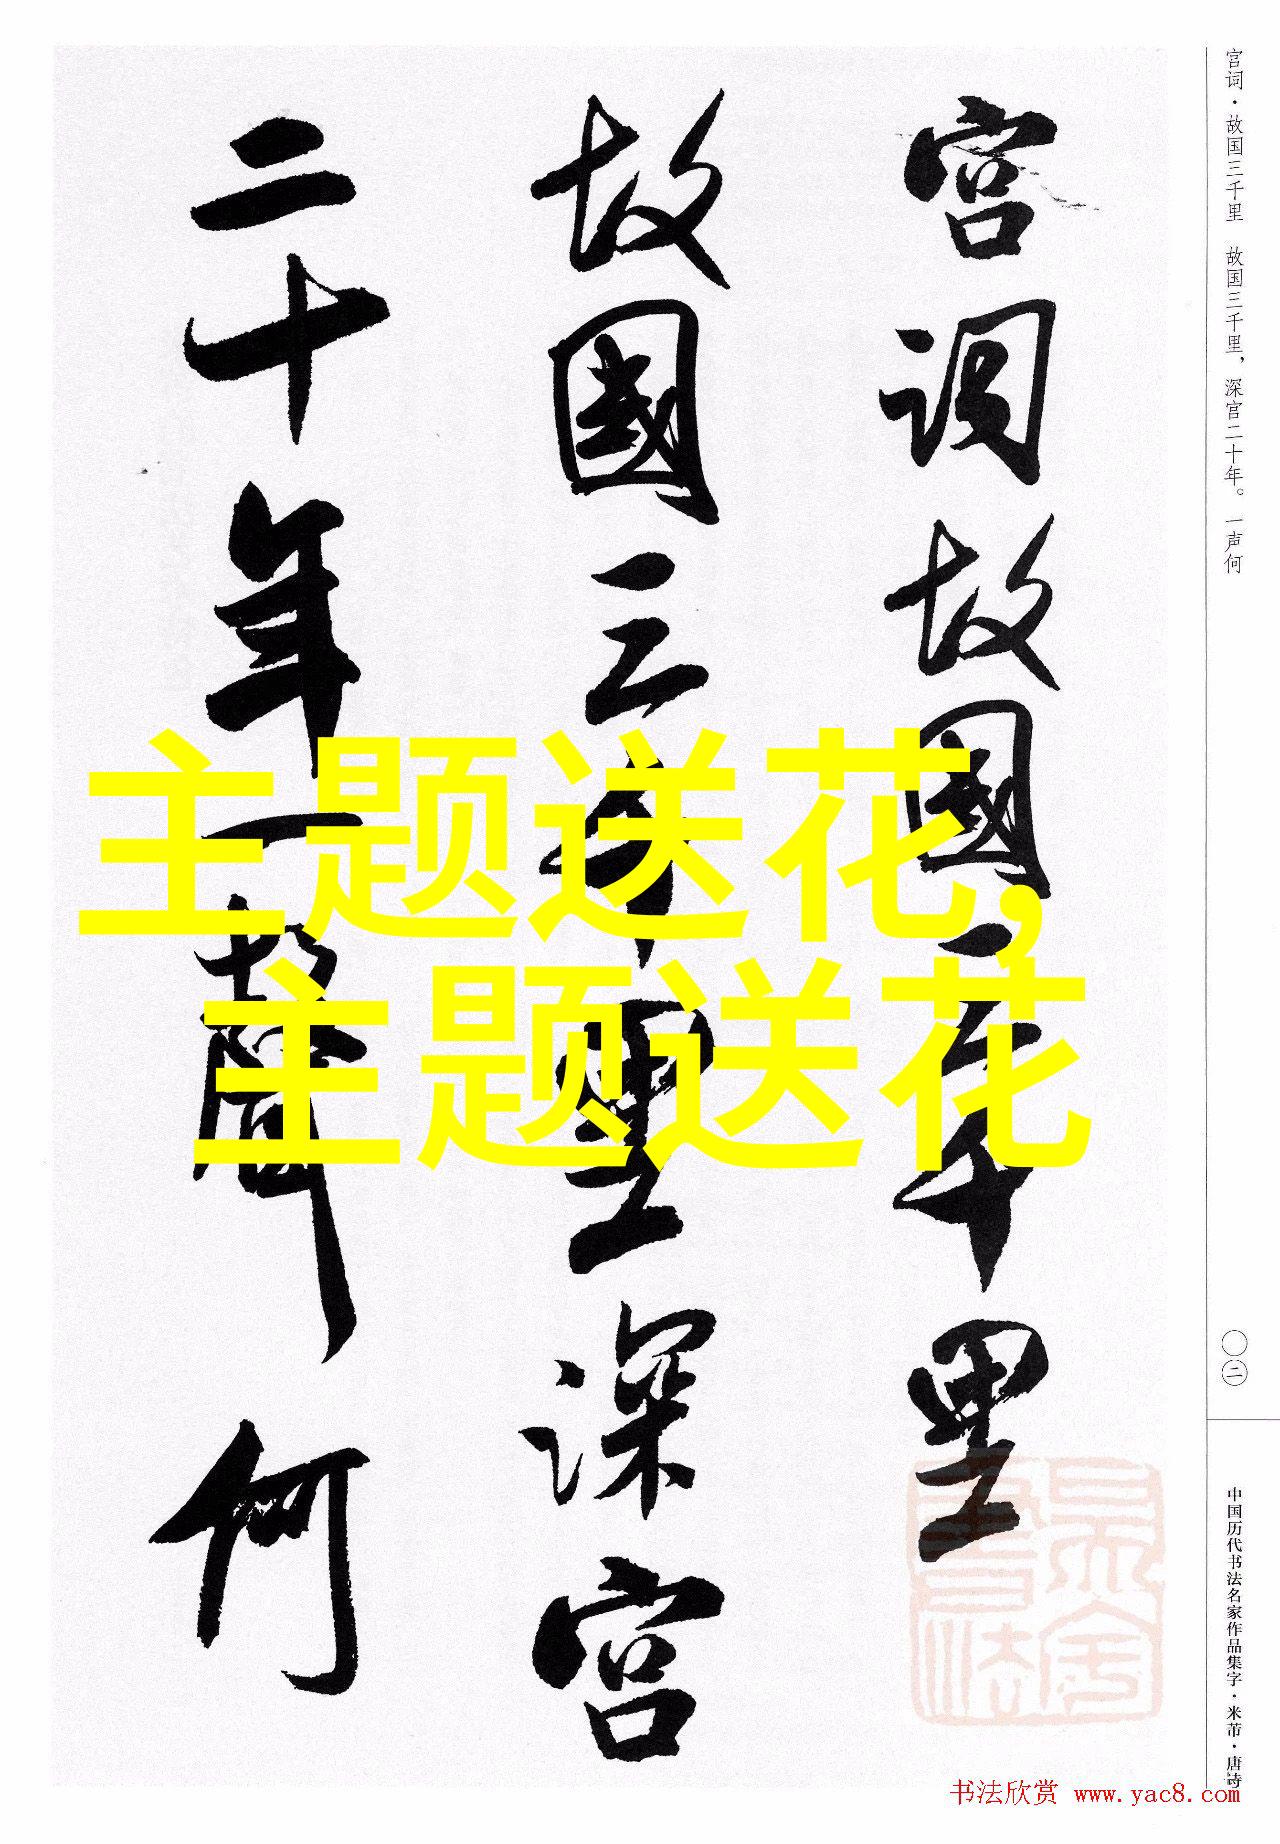 宫词·故国三千里 故国三千里，深宫二十年。一声何
宫词故國三千里
故國三千里深宫
二十年一聲何
主题送花，
主题送花
〇二
中国历代书法名家作品集字·米芾·唐诗
书法欣赏 www.yac8.com